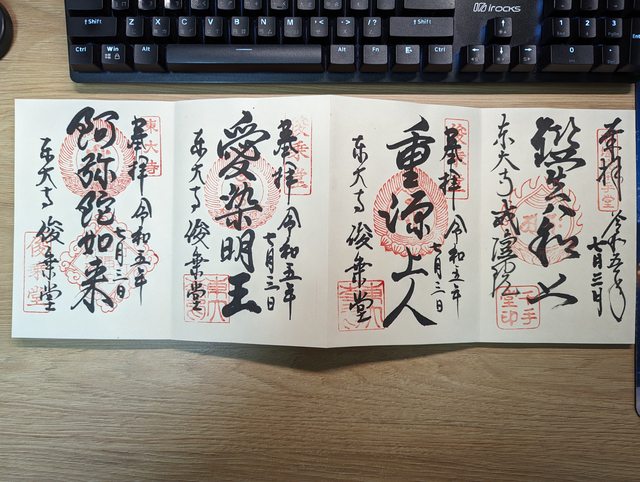 irocks
Shift
Shift
Ctrl
Win
Alt
Alt
Fn
Ctrl
奉拝
令和五年
七月三日
鑑真和上
東大寺 戒壇院
俊乗堂
奉拝
令和五年
七月三日
重源上人
東大寺 俊乗堂
俊乗堂
奉拝
令和五年
七月三日
愛染明王
東大寺 俊乗堂
東大寺
奉拝
令和五年
七月三日
阿弥陀如来
東大寺 俊乗堂